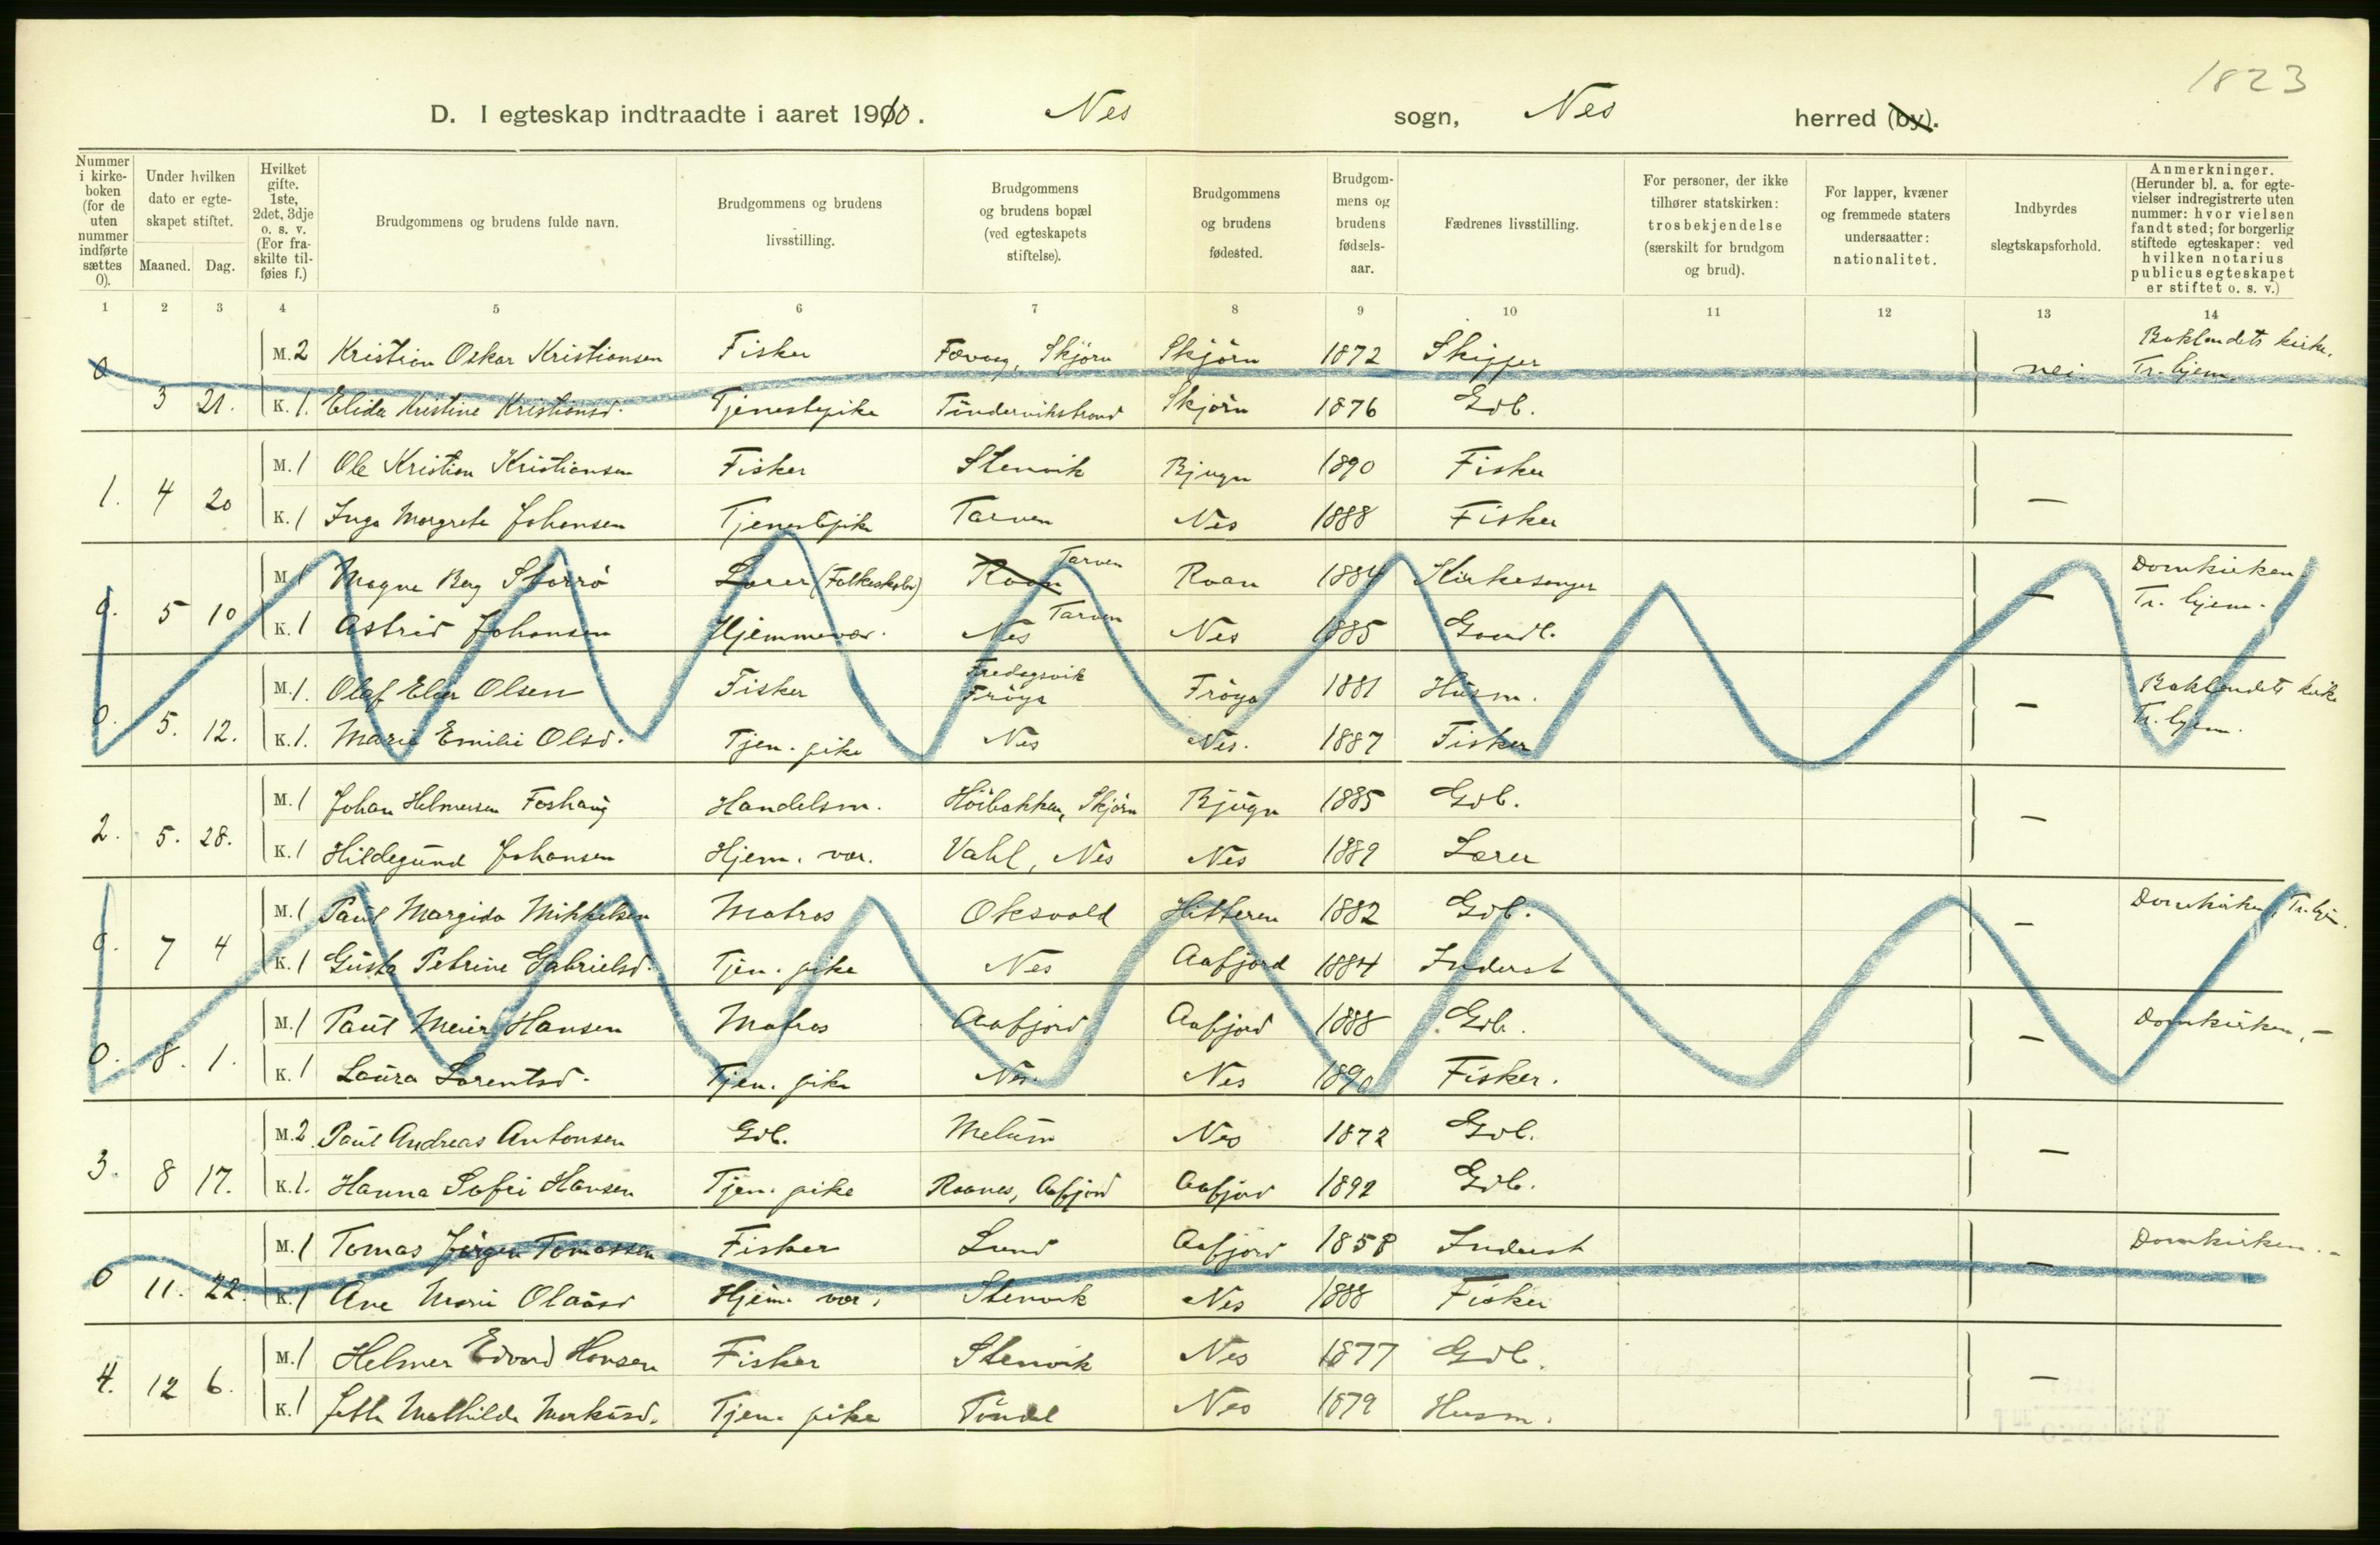 1823
D. I egteskap indtraadte i aaret 1910. Nes sogn, Nes herred (by).
Nummer i kirkeboken (for de uten nummer indførte sættes 0).
Under hvilken dato er egteskapet stiftet.
Maaned. Dag.
Hvilket gifte. 1ste, 2det, 3dje o. s. v. (For fraskilte tilføies f.)
Brudgommens og brudens fulde navn.
Brudgommens og brudens livsstilling.
Brudgommens og brudens bopæl (ved egteskapets stiftelse).
Brudgommens og brudens fødested.
Brudgommens og brudens fødselsaar.
Fædrenes livsstilling.
For personer, der ikke tilhører statskirken: trosbekjendelse (særskilt for brudgom og brud).
For lapper, kvæner og fremmede staters undersaatter: nationalitet.
Indbyrdes slegtskapsforhold.
Anmerkninger. (Herunder bl. a. for egtevielser indregistrerte uten nummer: hvor vielsen fandt sted; for borgerlig stiftede egteskaper: ved hvilken notarius publicus egteskapet er stiftet o. s. v.)
1 2 3 4 5 6 7 8 9 10 11 12 13 14
0 M. 2 Kristian Oskar Kristiansen Fisker Skjörn Skjörn 1872 Skipper nei Baklandets kirke. Tr. hjem.
3 21. K. 1. Elida Kristine Kristiansd. Tjenestepike Skjörn 1876 Gdb.
M. 1 Ole Kristian Kristiansen Fisker Stenvik Bjugn 1890 Fisker
1. 4 20 K. 1 Inga Margrete Johansen Tjenestepike Tarven Nes 1888 Fisker —
M. 1 Magne Berg Storrö Lærer (Folkeskole) Roan Tarven Roan 1884 Kirkesanger Domkirken Tr. hjem.
0. 5 10 K. 1 Astrid Johansen Hjemmevær. Nes Tarven Nes 1885 Gaardb. —
M. 1. Olaf Elier Olsen Fisker Fröya Fröya 1881 Husm. Baklandets kirke
0. 5. 12. K. 1. Marie Emilie Olsd. Tjen. pike Nes Nes. 1887 Fisker — Tr. hjem.
M. 1 Johan Helmersen Foshaug Handelsm. Höibakken, Skjörn Bjugn 1885 Gdb.
2. 5. 28. K. 1 Hildegund Johansen Hjem. vær. Vahl, Nes Nes 1889 Lærer —
M. 1 Paul Margido Mikkelsen Matros Oksvold Hitteren 1882 Gdb. Domkirken, Tr. hjem.
0. 7 4 K. 1 Gusta Petrine Gabrielsd. Tjen. pike Nes Aafjord 1884 Inderst —
M. 1 Paul Meier Hansen Matros Aafjord Aafjord 1888 Gdb. Domkirken, —
0. 8. 1. K. 1 Laura Lorentsd. Tjen. pike Nes. Nes 1890 Fisker. —
M. 2. Paul Andreas Antonsen Gdb. Melum Nes 1872 Gdb.
3. 8 17. K. 1. Hanna Sofie Hansen Tjen. pike Raanes, Aafjord Aafjord 1892 Gdb. —
M. 1 Tomas Jörgen Tomassen Fisker Lund Aafjord 1858 Inderst Domkirken. —
0 11. 22. K. 1 Ane Marie Olausd Hjem. vær. Stenvik Nes 1888 Fisker —
M. 1 Helmer Edvard Hansen Fisker Stenvik Nes 1877 Gdb.
4. 12 6. K. 1 Mathilde Markusd. Tjen. pike Töndel Nes 1879 Husm. —